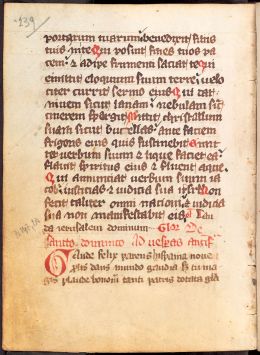 239
portarum tuarum: benedixit filiis
tuis in te Qui posuit fines tuos pa
cem: et adipe frumenti saciat te Qui
emittit eloquium suum terre: velo
citer currit sermo eius Qui dat
nivem sicut lanam: nebulam sicut
cinerem spargit Mittit christallum
suam sicut bucellas: ante faciem
frigoris eius quis sustinebit Emit
tet verbum suum et lique faciet ea
flavit spiritus eius et fluent aque
Qui annunciat verbum suum ia
cob: iusticias et iudicia sua israhel Non
fecit taliter omni nacioni: et iudicia
sua non manifestabit eis Lau
da ierusalem dominum Glor De
sancto dominico Ad vesperas antiph
Gaude felix parens hyspania nove
prolis dans mundo gaudia Sed tu ma
gis plaude bononia tanti patris dotata gla